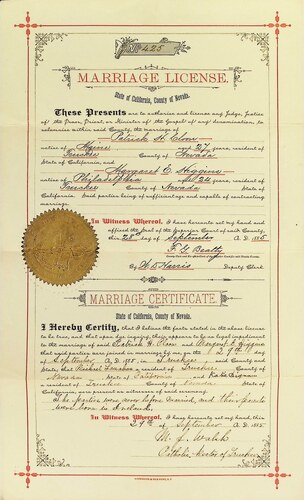 No. 425
MARRIAGE LICENSE.
State of California, County of Nevada.
These Presents are to authorize and license any Judge, Justice
of the Peace, Priest, or Minister of the Gospel of any denomination, to
solemnize within said County, the marriage of
Patrick H.
native of aged 27 years, resident of
Truckee County of Nevada
State of California, and
Margaret E. Higgins
native of Philadelphia aged 24 years, resident of
Truckee County of Nevada State of
California. Said parties being of sufficient age and capable of contracting
marriage.
In Witness Whereof, I have hereunto set my hand and
affixed the Seal of the Superior Court of said County,
this 28th day of September A. D. 1885
Beatty
By Harris Deputy Clerk
MARRIAGE CERTIFICATE.
State of California, County of Nevada.
I Hereby Certify, that I believe the facts stated in the above license
to be true, and that upon inquiry, there appears to be no legal impediment
to the marriage of said Patrick H. and Margaret E. Higgins
that said parties were joined in marriage by me on the 29th day of
September A. D. 1885, in Truckee County and
State; that Michael a resident of Truckee County of
Nevada State of and Katie
a resident of Truckee County of Nevada State of
California, were present as witnesses of said ceremony.
The parties were never before married, and their parents
were born in Ireland.
In Witness Whereof, I have hereunto set my hand, this
29th day of September A. D. 1885.
M. J. Walsh
Catholic Rector of Truckee